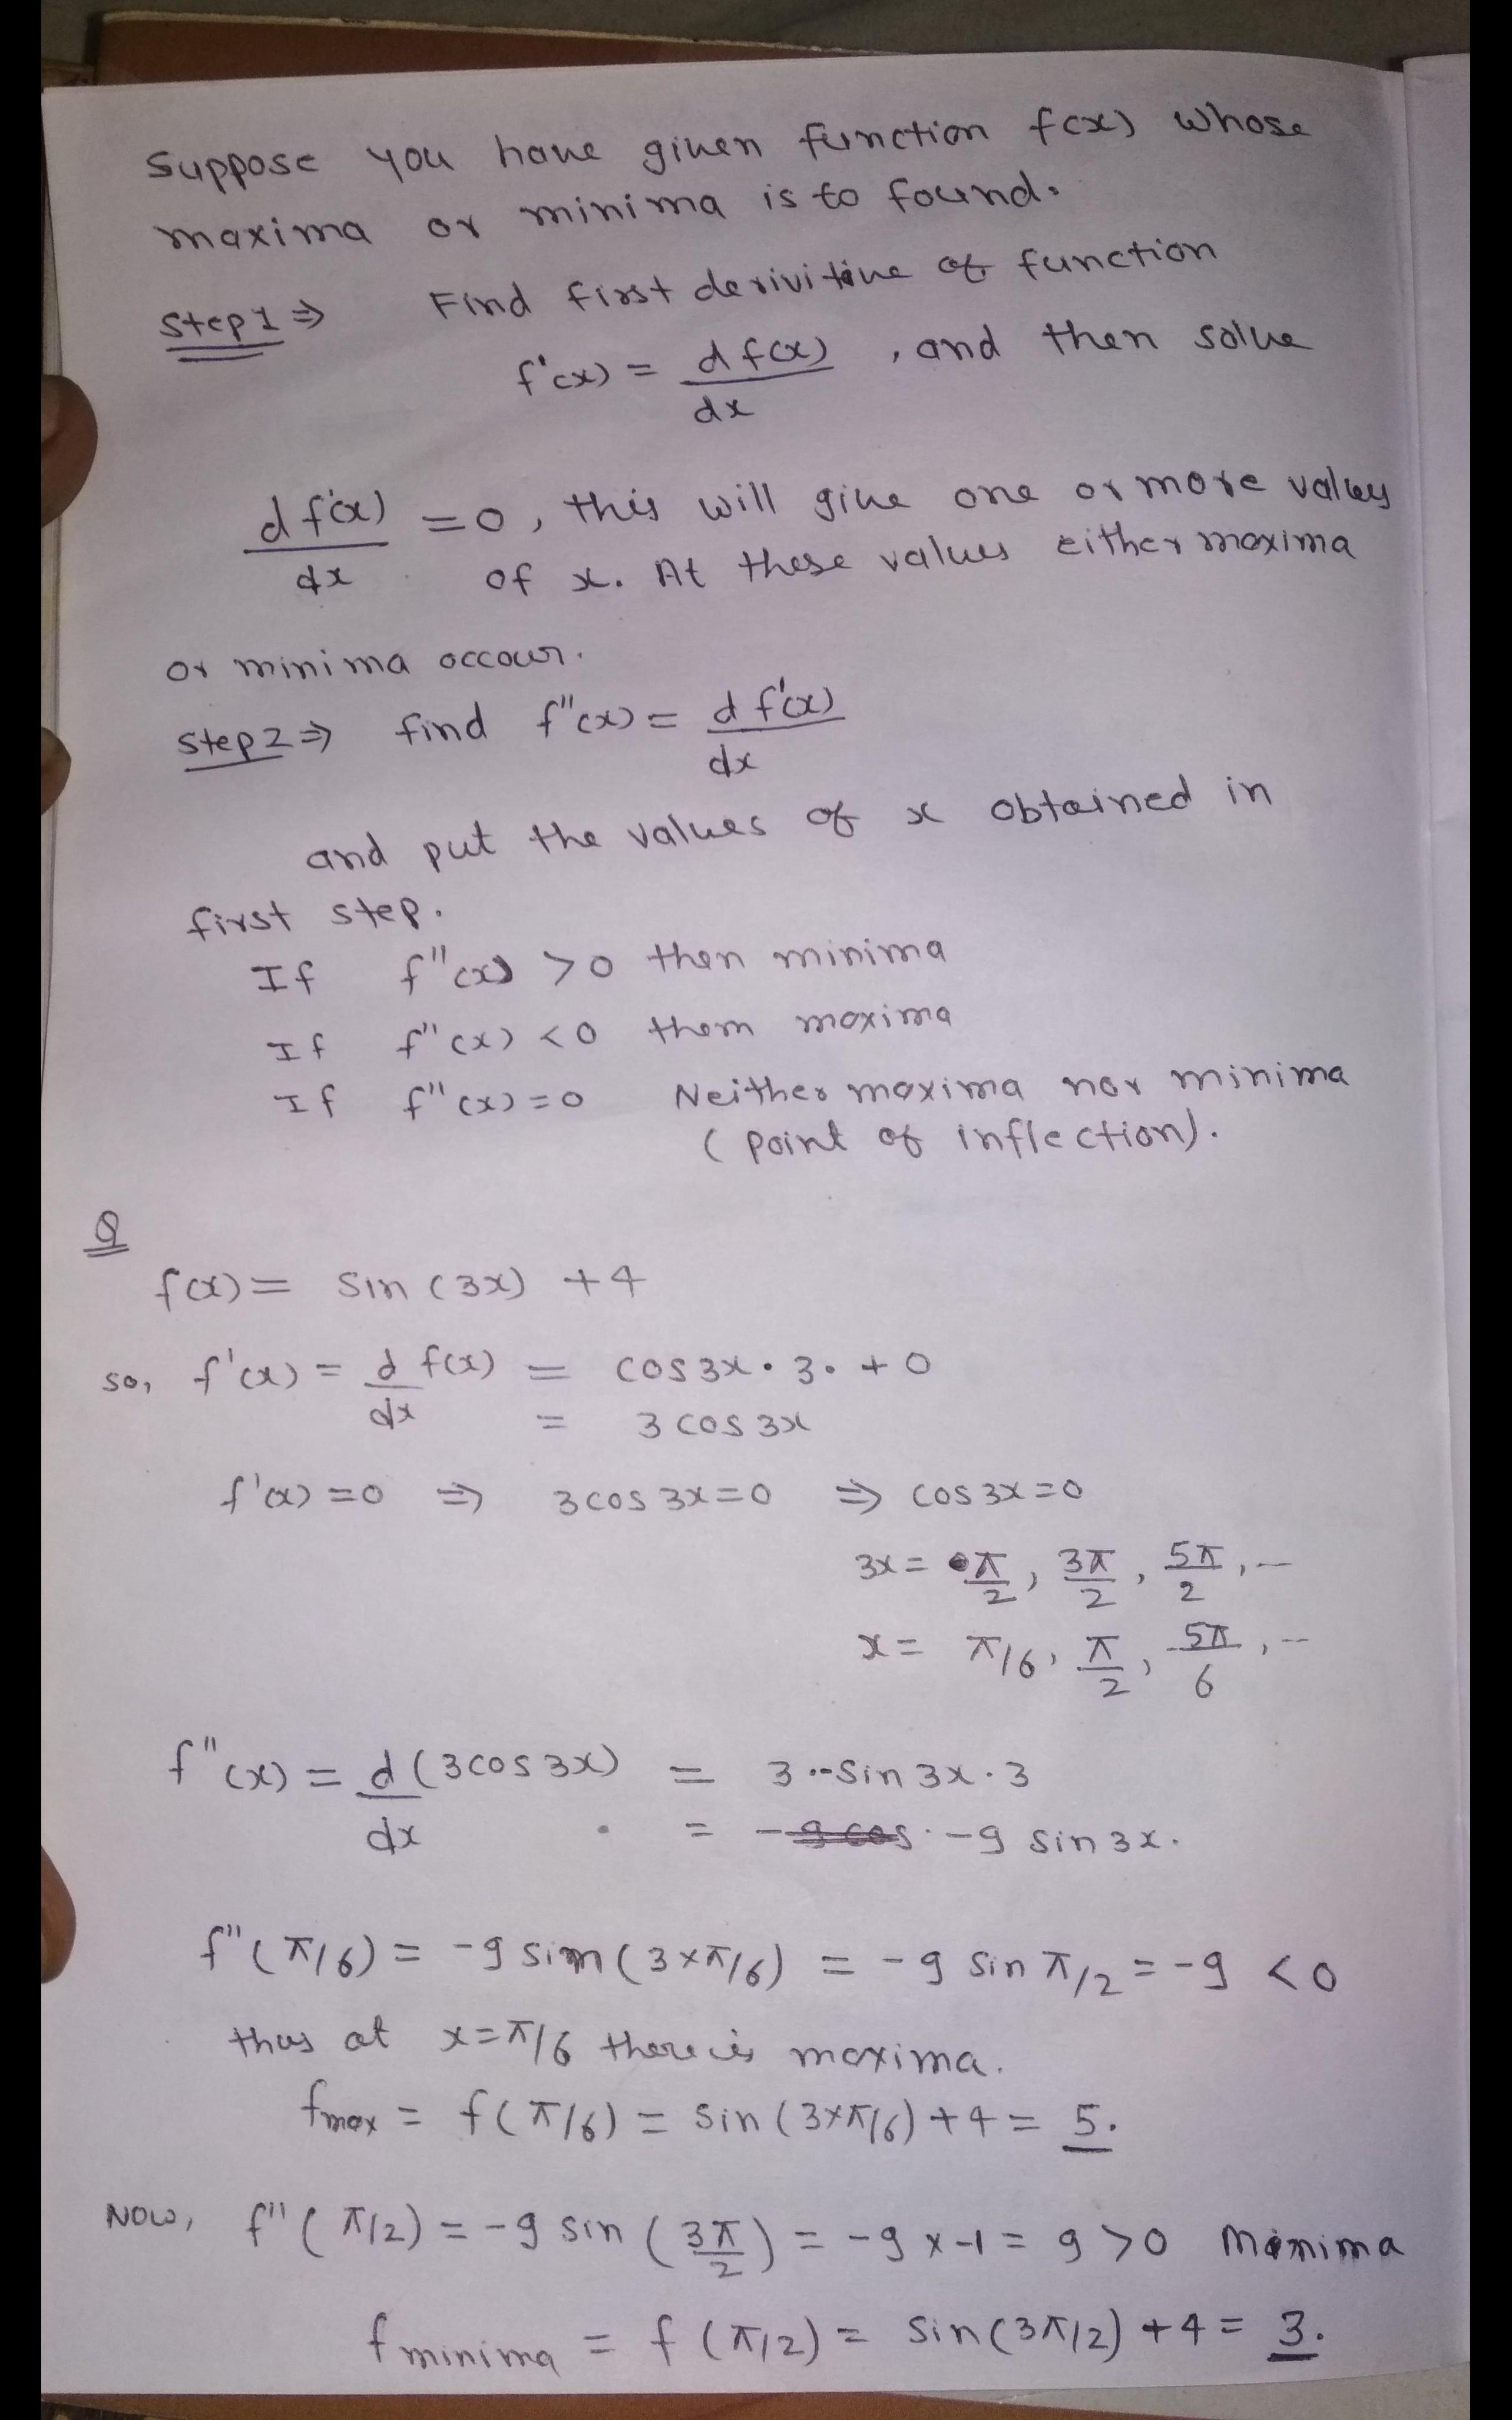 Suppose you have given function f(x) whose
maxima or minima is to found.
Step 1 ⇒ Find first derivitive of function
f'(x) = d f(x)/dx , and then solve
d f(x)/dx = 0, this will give one or more values
of x. At these values either maxima
or minima occour.
Step 2 ⇒ find f''(x) = d f'(x)/dx
and put the values of x obtained in
first step.
If f''(x) > 0 then minima
If f''(x) < 0 them maxima
If f''(x) = 0 Neither maxima nor minima
( point of inflection).
Q
f(x) = Sin (3x) + 4
so, f'(x) = d/dx f(x) = cos3x · 3 · + 0
= 3 cos 3x
f'(x) = 0 ⇒ 3 cos 3x = 0 ⇒ cos 3x = 0
3x = π/2, 3π/2, 5π/2, --
x = π/6, π/2, 5π/6, --
f''(x) = d/dx (3cos3x) = 3 · -Sin 3x · 3
= -9 sin 3x.
f''(π/6) = -9 sin (3×π/6) = -9 sin π/2 = -9 < 0
thus at x = π/6 there is maxima.
fmax = f(π/6) = sin (3×π/6) + 4 = 5.
Now, f''(π/2) = -9 sin (3π/2) = -9 × -1 = 9 > 0 Minima
fminima = f(π/2) = sin (3π/2) + 4 = 3.